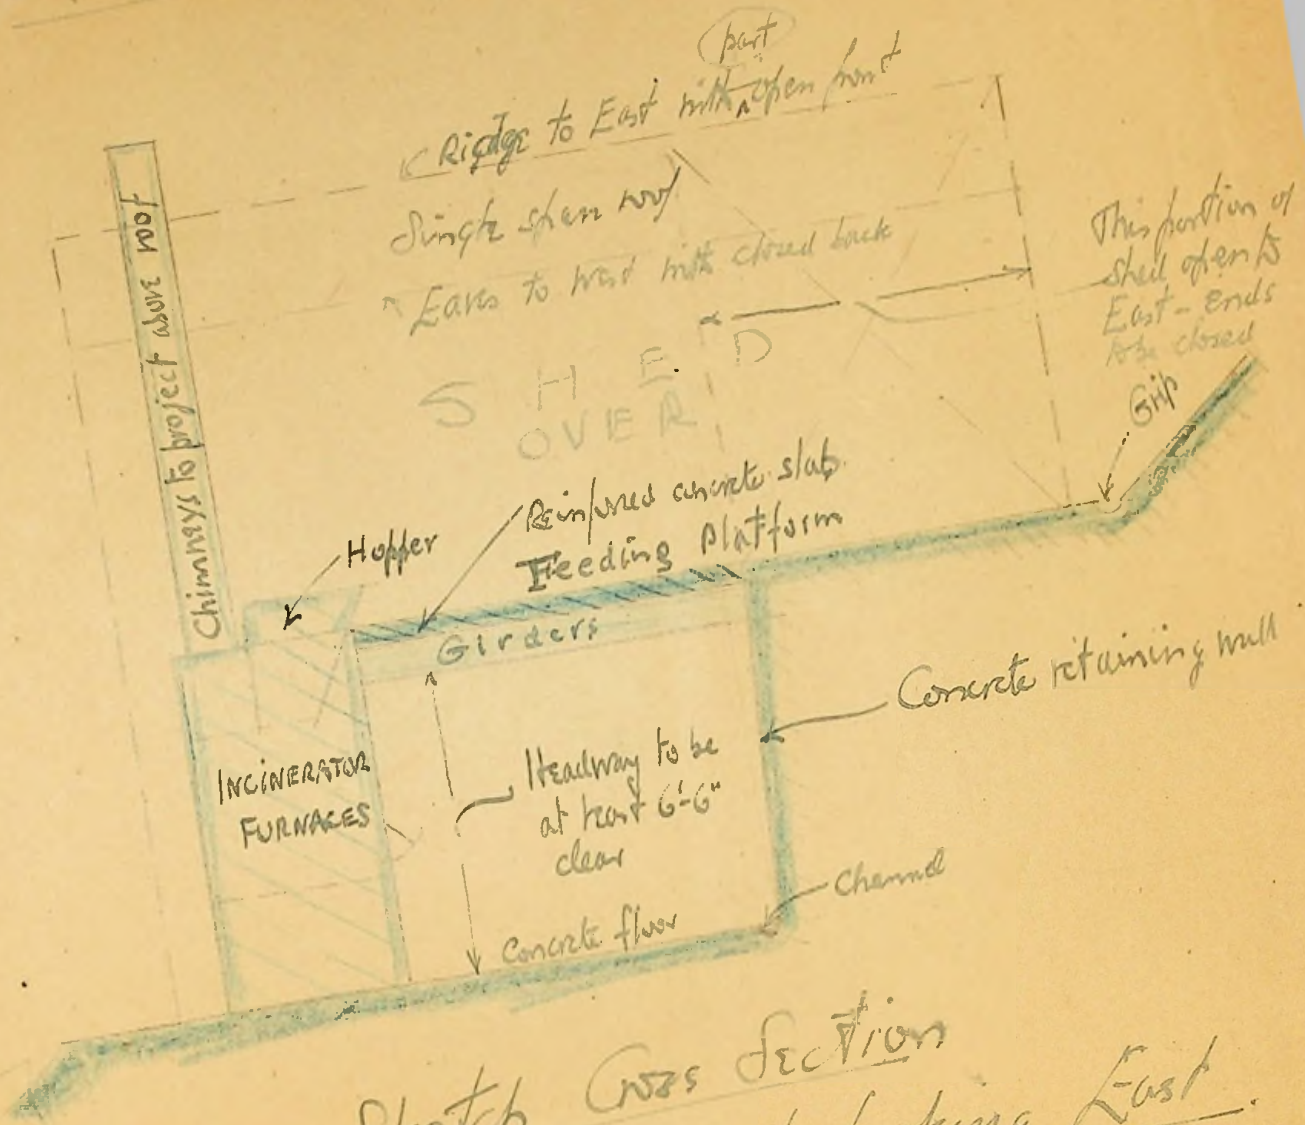 part
Ridge to East with ^ open front
Single span roof
Eaves to west with closed back
SHED
OVER
This portion of
shed open to
East - Ends
to be closed
Grip
Chimneys to project above roof
Hopper
Reinforced concrete slab
Feeding Platform
Girders
Concrete retaining wall
INCINERATOR
FURNACES
Headway to be
at least 6'-6"
clear
Channel
Concrete floor
Sketch Cross Section
looking East.